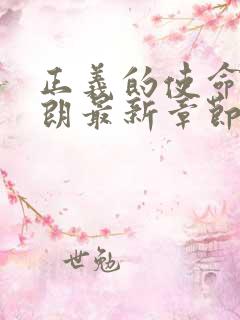 正義的使命
朗最新章節
世勉